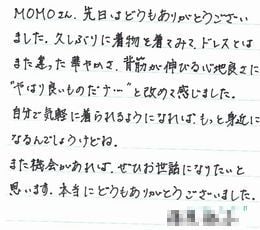 MOMOさん、先日はどうもありがとうござい
ました。久しぶりに着物を着てみて、ドレスとは
また違った華やかさ、背筋が伸びる心地良さに
"やはり良いものだナ…"と改めて感じました。
自分で気軽に着られるようになれば、もっと身近に
なるんでしょうけどね。
また機会があれば、ぜひお世話になりたいと
思います。本当にどうもありがとうございました。